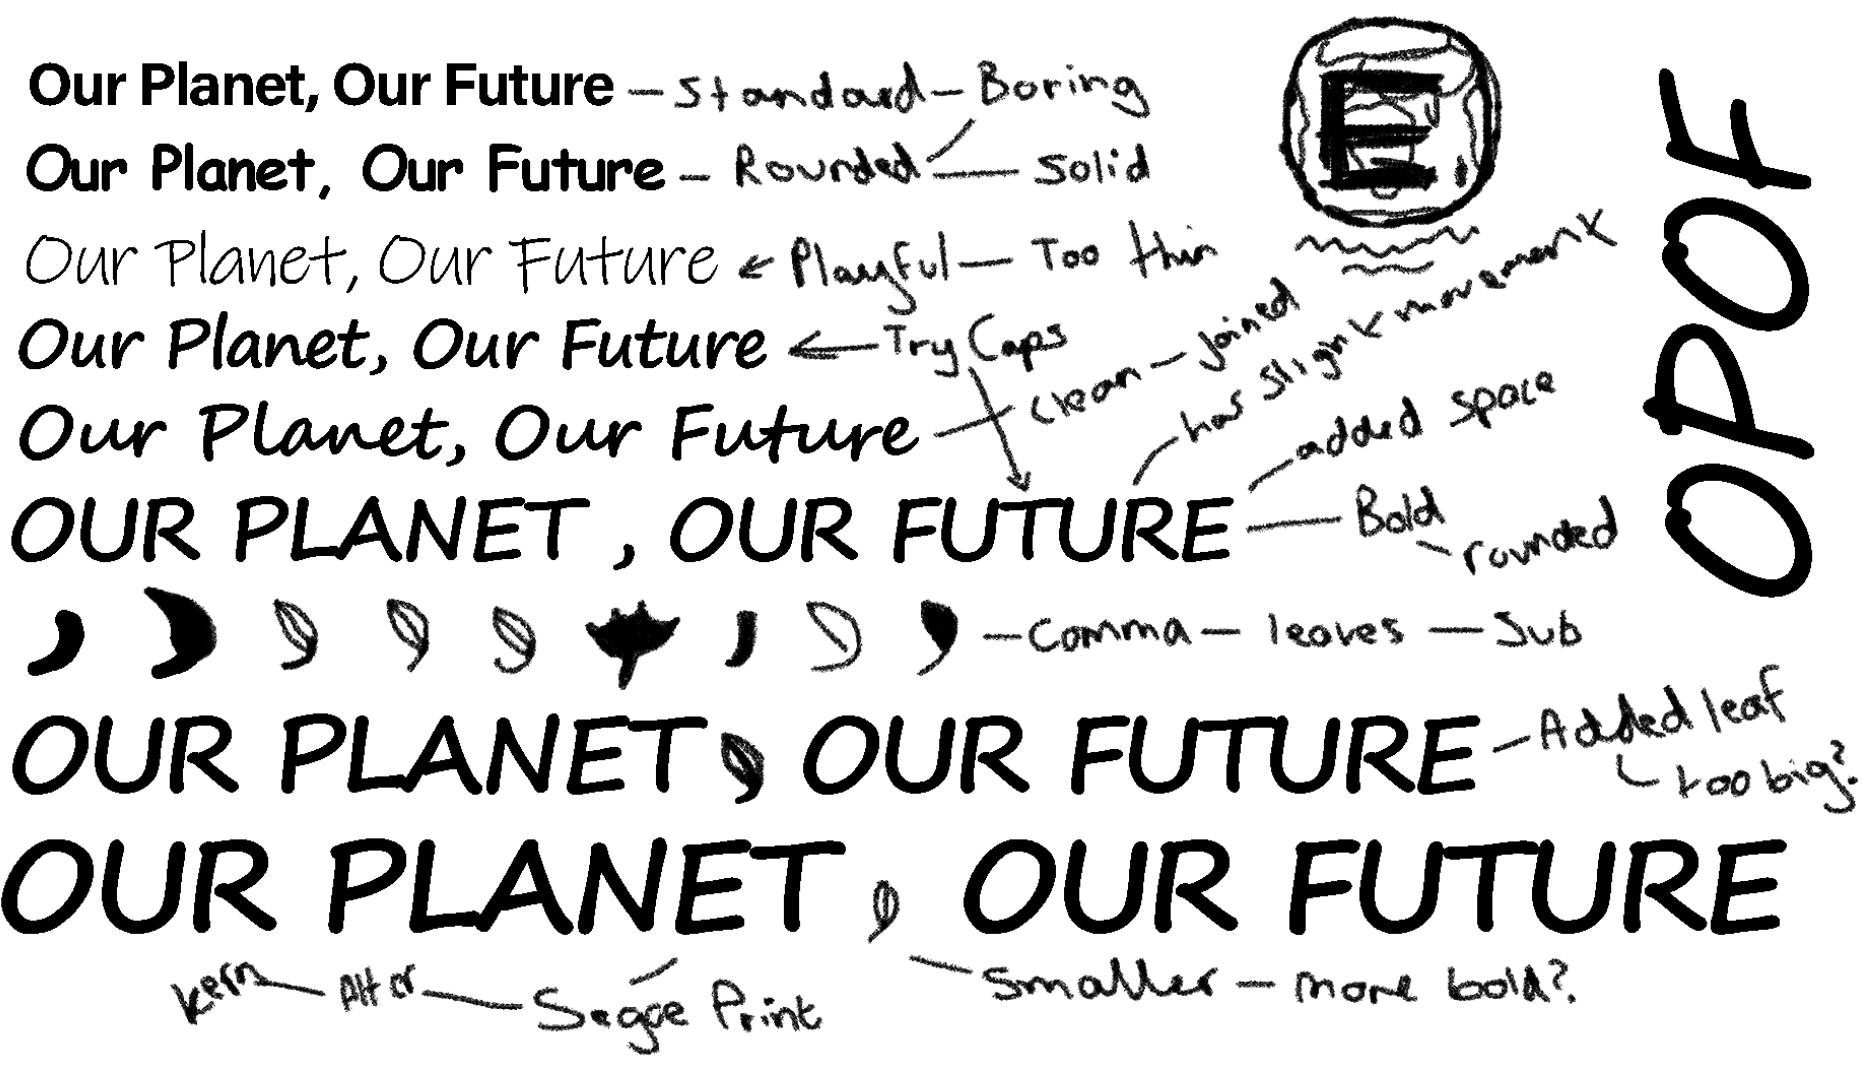 Our Planet, Our Future – Standard – Boring
Our Planet, Our Future – Rounded – Solid
Our Planet, Our Future ← Playful – Too thin
Our Planet, Our Future ← Try Caps
Our Planet, Our Future – clean – joined
has slight movement
added space
OUR PLANET , OUR FUTURE – Bold – rounded
– Comma – leaves – Sub
OUR PLANET, OUR FUTURE – Added leaf
too big?
OUR PLANET , OUR FUTURE
Kern – Alt or – Segoe Print
Smaller – more bold?
E
OPOF